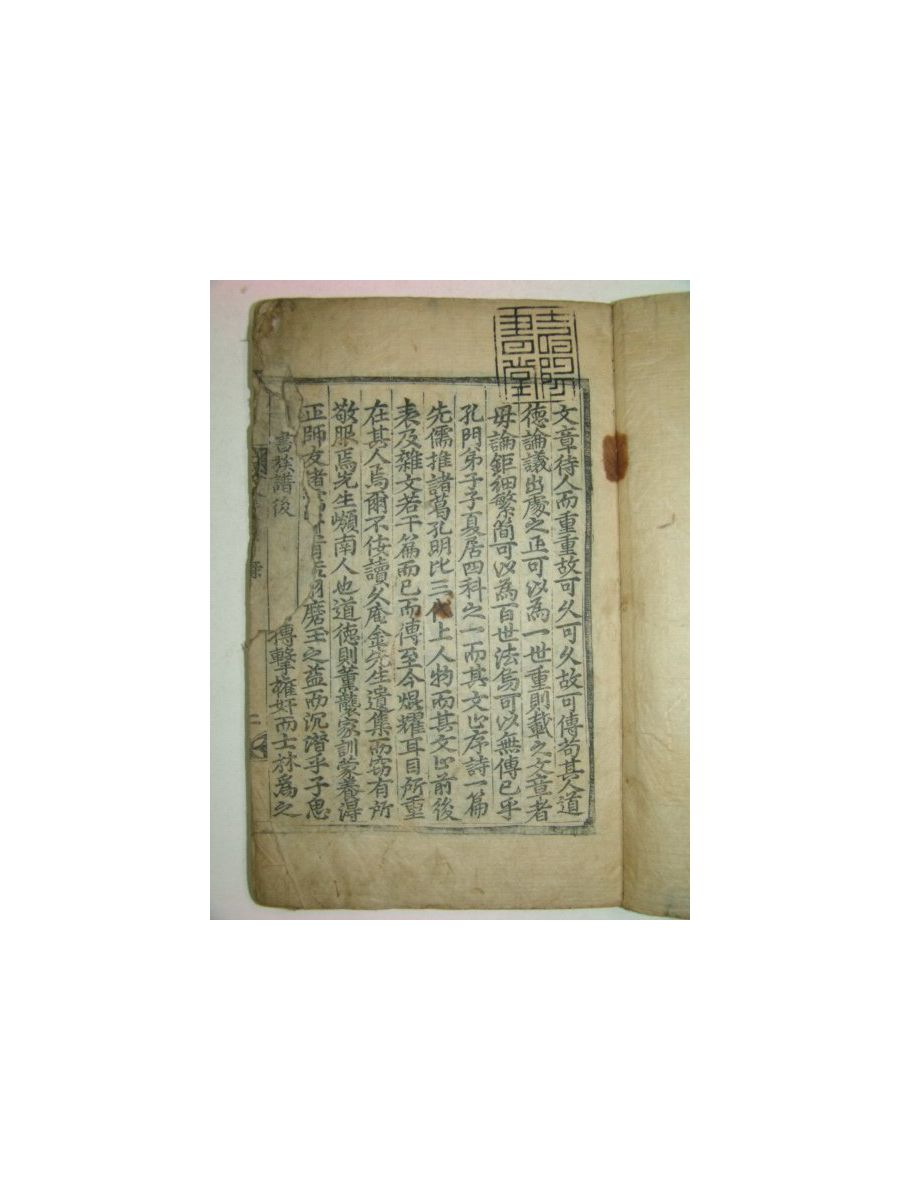 文章待人而重重故可久可久故可傳苟其人道
德論議出處之正可以為一世重則載之文章者
毋論鉅細繁简可以為百世法烏可以無傳已乎
孔門弟子子夏居四科之一而其文止序詩一篇
先儒推諸葛孔明比三代上人物而其文止前後
表及雜文若干篇而已而傳至今焜耀耳目所重
在其人焉爾不侫讀久庵金先生遺集而窃有所
敬服焉先生嶺南人也道德則薰襲家訓蒙養得
正師友道磨玉之益而沉潜乎子思
書族譜後
搏擊權奸而士林爲之
書堂